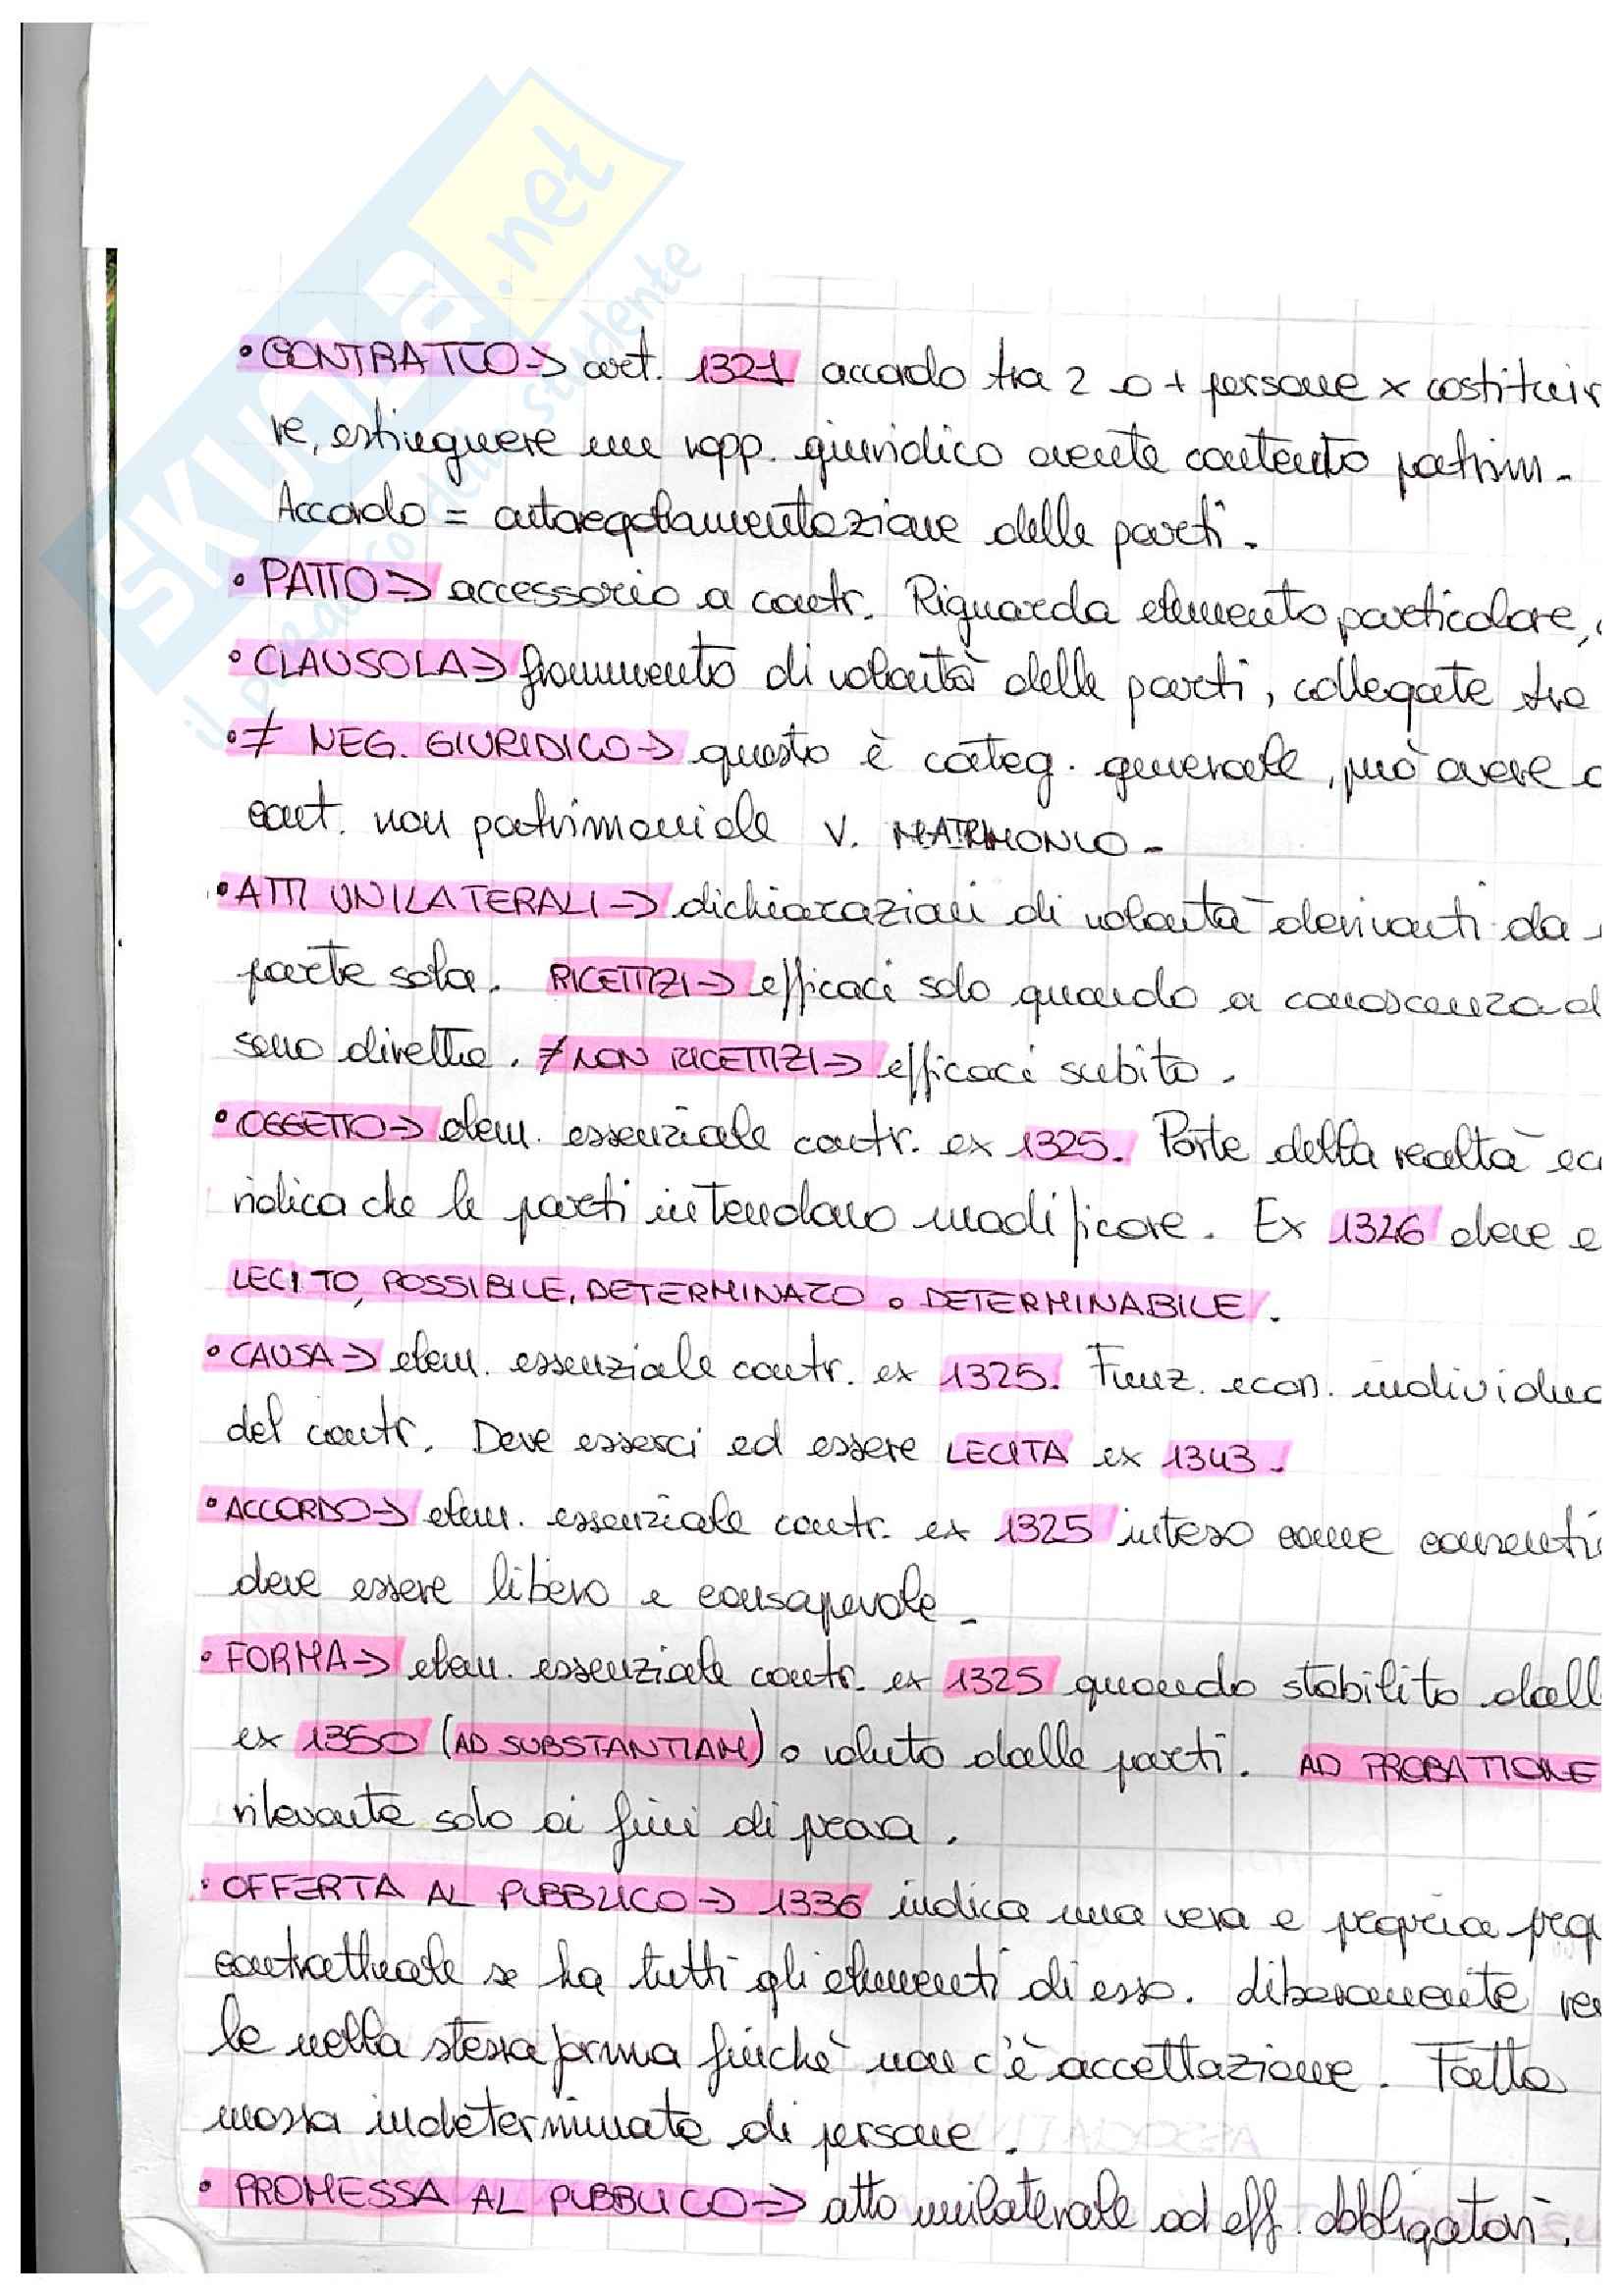 SKUOLA.net
il paradiso dello studente
• CONTRATTO → art. 1321 accordo tra 2 o + persone x costituir
re, estinguere un rapp. giuridico avente contenuto patrim.
Accordo = autoregolamentazione delle parti.
• PATTO → accessorio a contr. Riguarda elemento particolare,
• CLAUSOLA → frammento di volontà delle parti, collegate tra
• ≠ NEG. GIURIDICO → questo è categ. generale, può avere
cont. non patrimoniale V. MATRIMONIO.
• ATTI UNILATERALI → dichiarazioni di volontà derivanti da
parte sola. RICETTIZI → efficaci solo quando a conoscenza d
sono diretti. ≠ NON RICETTIZI → efficaci subito.
• OGGETTO → elem. essenziale contr. ex 1325. Parte della realtà ec
ridica che le parti intendono modificare. Ex 1346 deve e
LECITO, POSSIBILE, DETERMINATO o DETERMINABILE.
• CAUSA → elem. essenziale contr. ex 1325. Funz. econ. individua
del contr. Deve esserci ed essere LECITA ex 1343.
• ACCORDO → elem. essenziale contr. ex 1325 inteso come consenti
deve essere libero e consapevole.
• FORMA → elem. essenziale contr. ex 1325 quando stabilito dall
ex 1350 (AD SUBSTANTIAM) o voluto dalle parti. AD PROBATIONE
rilevante solo ai fini di prova.
• OFFERTA AL PUBBLICO → 1336 indica una vera e propria prop
contrattuale se ha tutti gli elementi di esso. Liberamente rev
le nella stessa forma finchè non c'è accettazione. Fatta
massa indeterminata di persone.
• PROMESSA AL PUBBLICO → atto unilaterale ad eff. obbligatori.